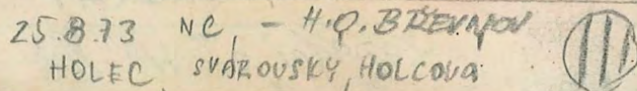 25.8.73 NC, - H.Q. BŘEVNOV
HOLEC, SVÁROVSKÝ, HOLCOVÁ
III